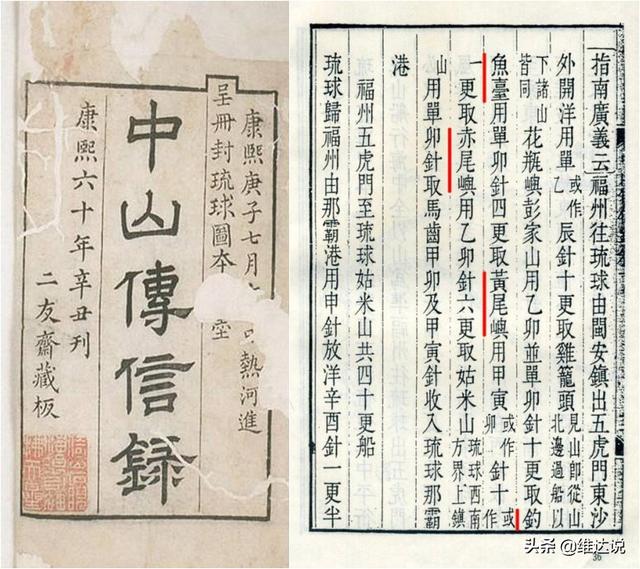 康熙庚子七月熱河進
呈冊封琉球圖本堂
中山傳信錄
康熙六十年辛丑刊
二友齋藏板
指南廣義云福州往琉球由閩安鎮出五虎門東沙
外開洋用單或作乙辰針十更取雞籠頭見山即從山北邊過船以
下諸山皆同花瓶嶼彭家山用乙卯並單卯針十更取釣
魚臺用單卯針四更取黃尾嶼用甲寅或作卯針十或作
一更取赤尾嶼用乙卯針六更取姑米山琉球西南方界上鎮
山用單卯針取馬齒甲卯及甲寅針收入琉球那霸
港
福州五虎門至琉球姑米山共四十更船
琉球歸福州由那霸港用申針放洋辛酉針一更半
36
头条 @维达说